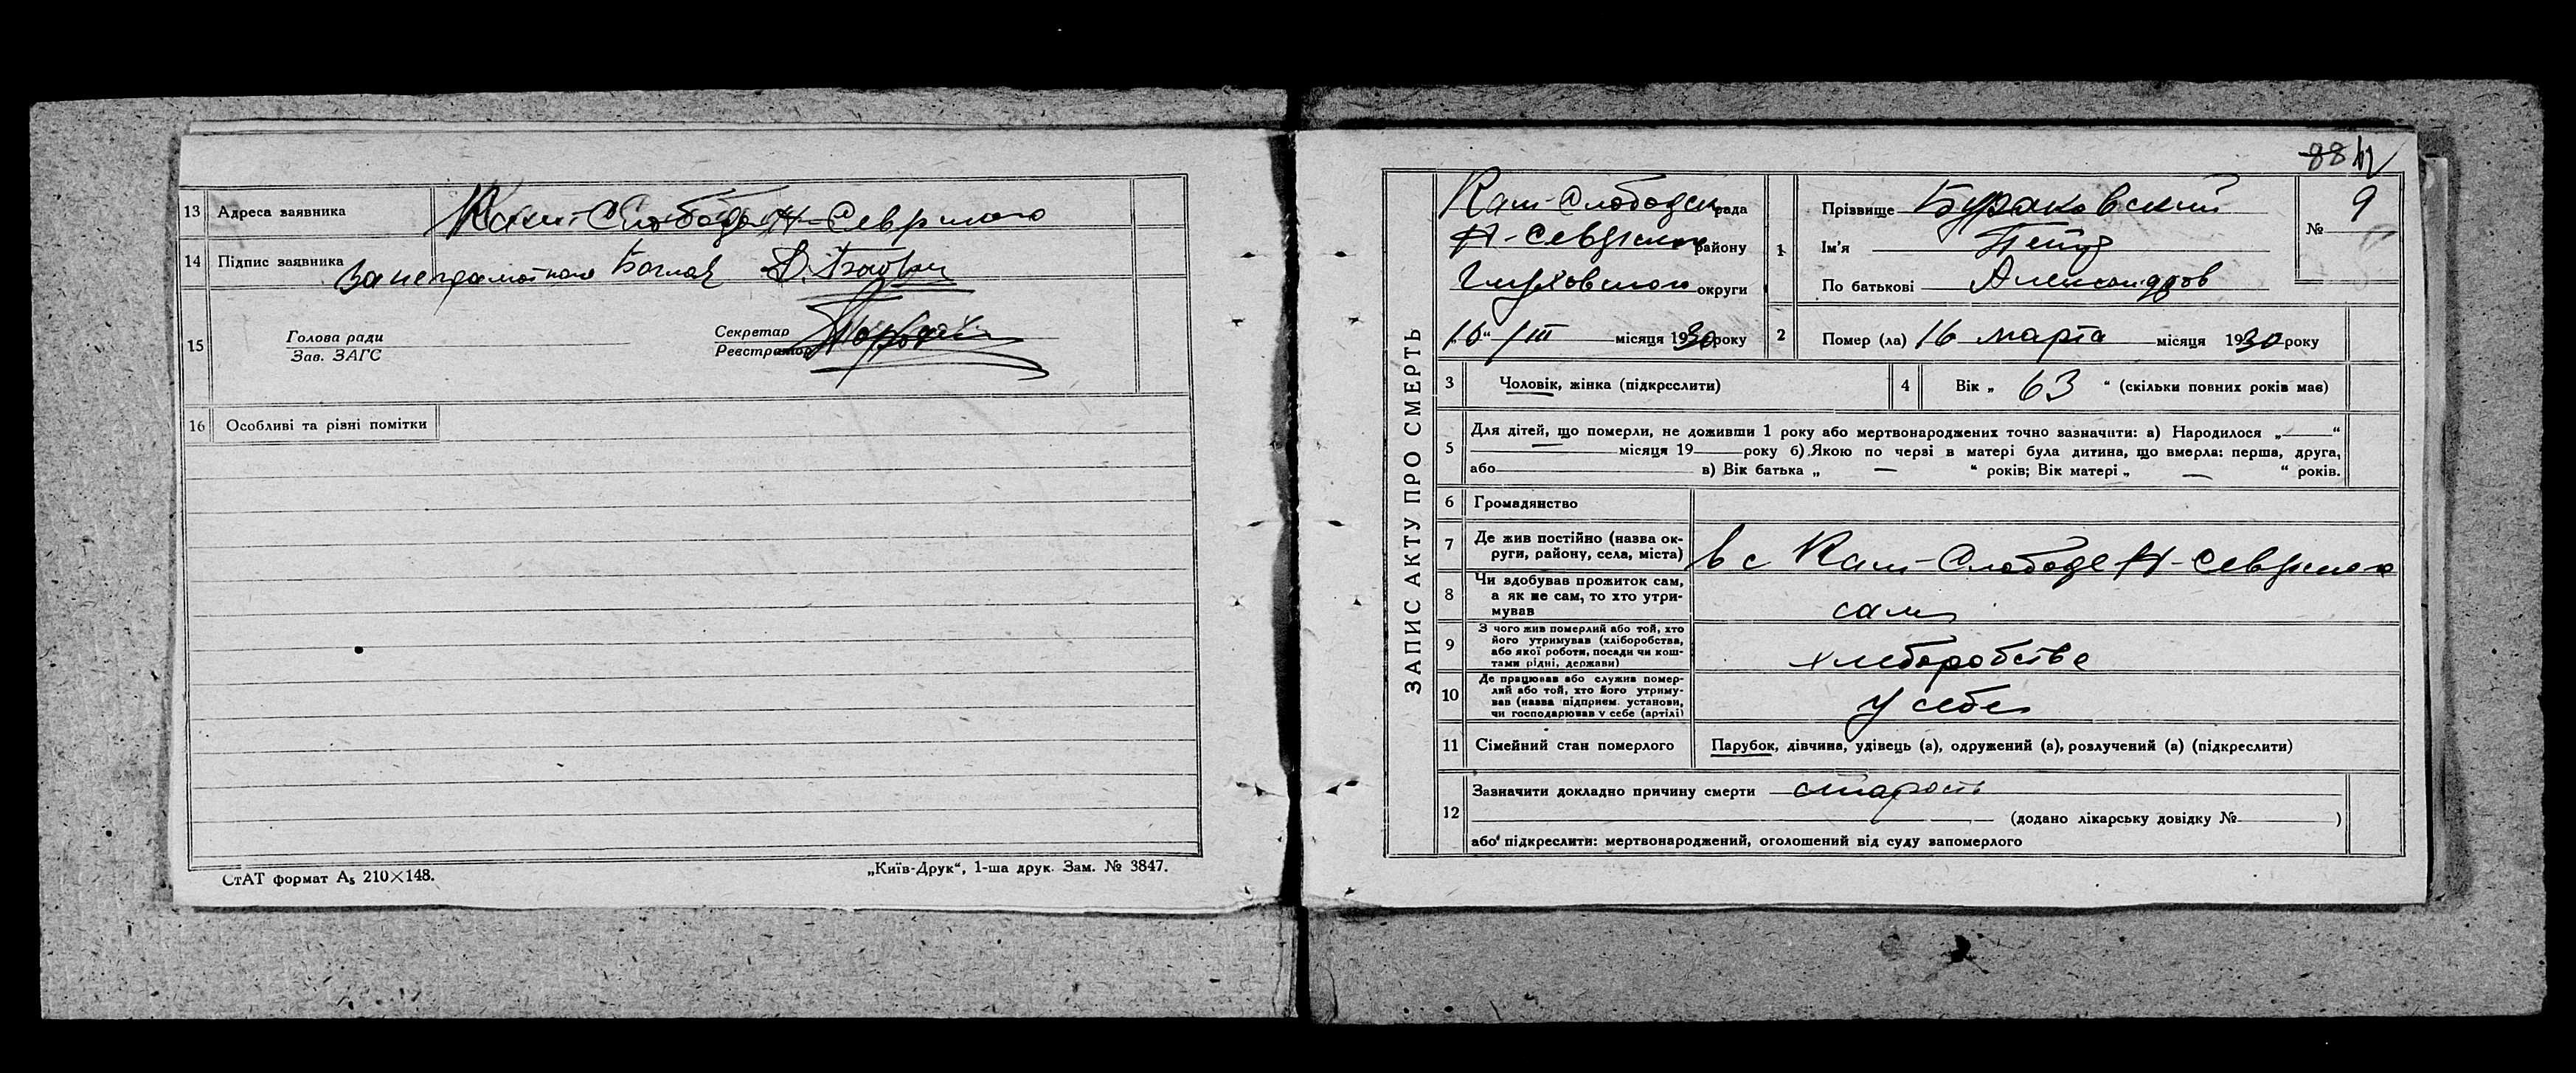 13 Адреса заявника Кам-Слобода Н-Северского
14 Підпис заявника За неграмотного
15 Голова ради
Зав. ЗАГС
Секретар
Реєстратор
16 Особливі та різні помітки
СтАТ формат А₅ 210×148.
„Київ-Друк“, 1-ша друк. Зам. № 3847.
88
ЗАПИС АКТУ ПРО СМЕРТЬ
Кам-Слободск рада
Н-Северского району
Глуховского округи
16“ /III місяця 1930 року
1 Прізвище Бураковский
Ім'я Петр
По батькові Александров
№ 9
2 Помер (ла) 16 марта місяця 1930 року
3 Чоловік, жінка (підкреслити)
4 Вік „ 63 “ (скільки повних років має)
5 Для дітей, що померли, не доживши 1 року або мертвонароджених точно зазначити: а) Народилося „—“
— місяця 19 року б) Якою по черзі в матері була дитина, що вмерла: перша, друга,
або в) Вік батька „ — “ років; Вік матері „ — “ років.
6 Громадянство
7 Де жив постійно (назва ок-
руги, району, села, міста)
в с Кам-Слободе Н-Северского
8 Чи здобував прожиток сам,
а як не сам, то хто утри-
мував
сам
9 З чого жив померлий або той, хто
його утримував (хліборобства,
або якої роботи, посади чи кош-
тами рідні, держави)
хлеборобство
10 Де працював або служив помер-
лий або той, хто його утриму-
вав (назва підприєм. установи,
чи господарював у себе (артілі)
у себе
11 Сімейний стан померлого Парубок, дівчина, удівець (а), одружений (а), розлучений (а) (підкреслити)
12 Зазначити докладно причину смерти старость
(додано лікарську довідку № )
або підкреслити: мертвонароджений, оголошений від суду запомерлого